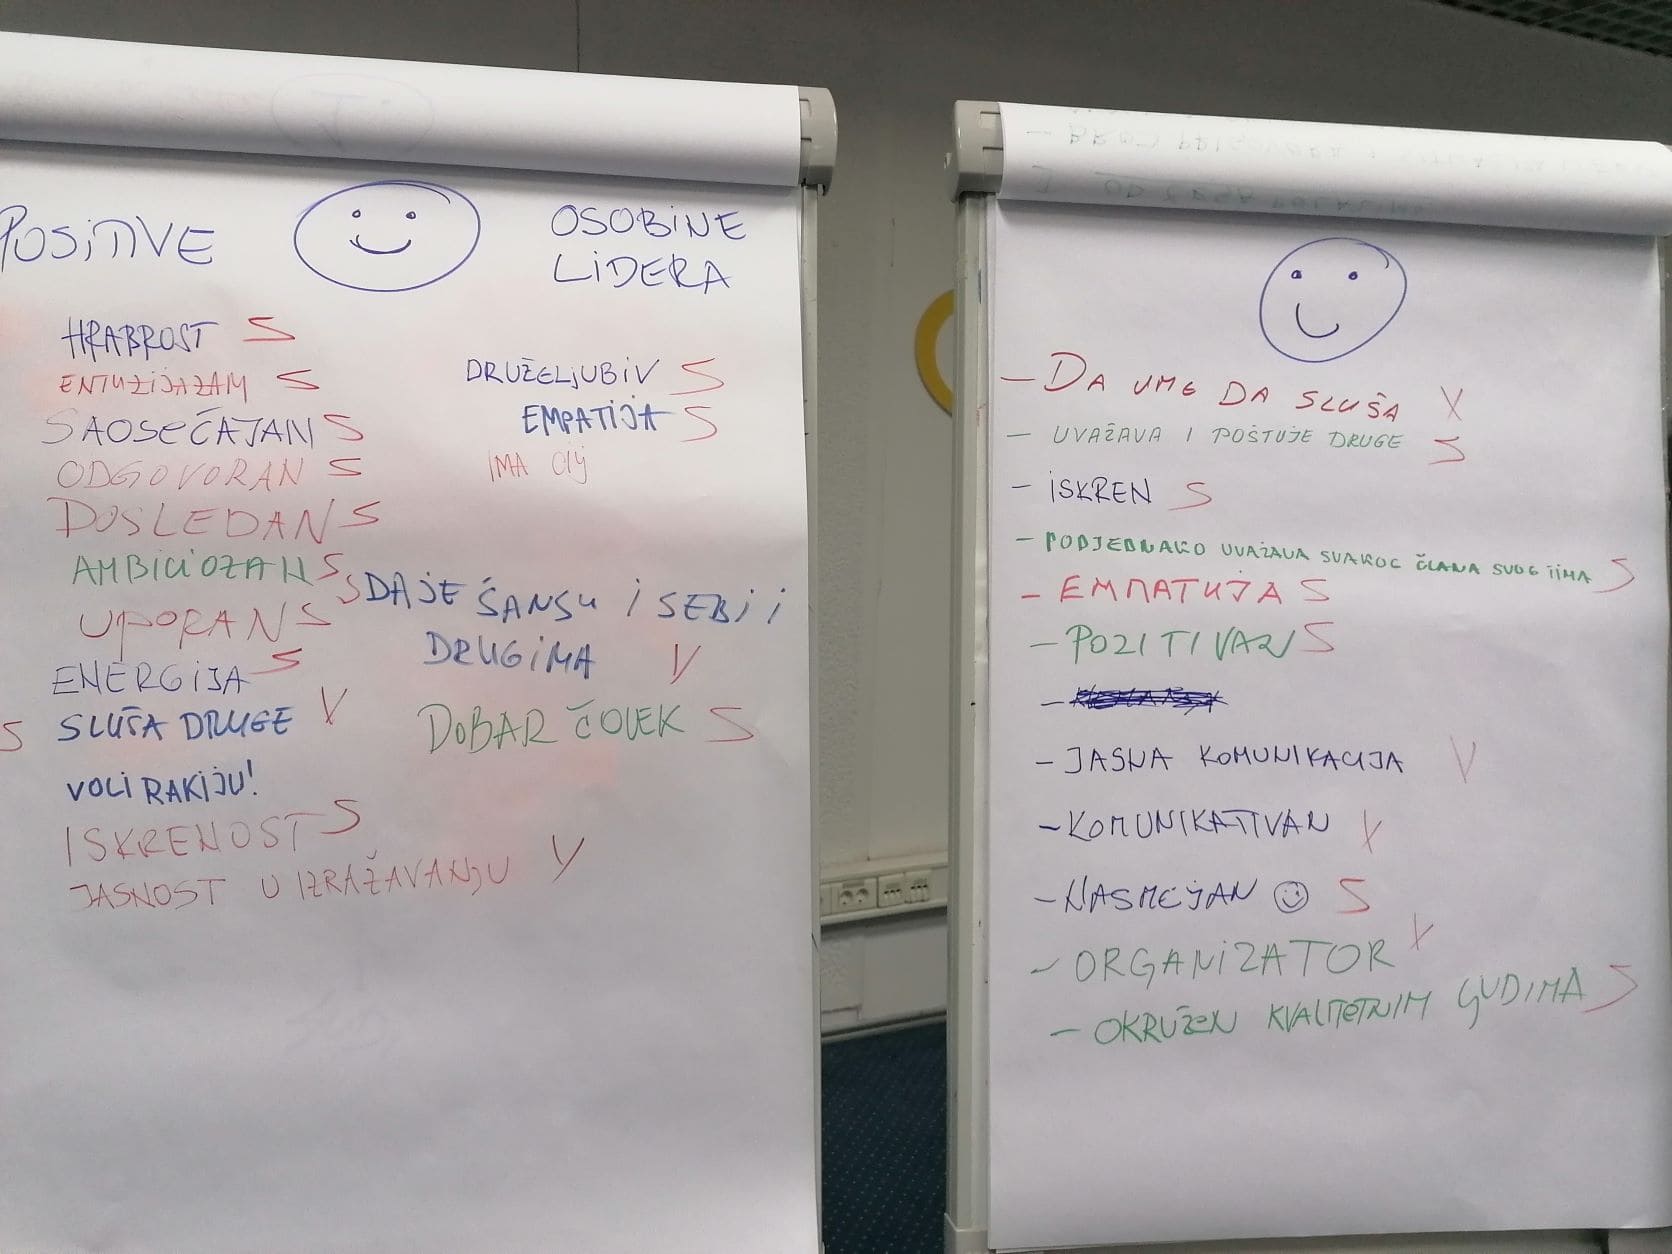 POSITIVE
OSOBINE
LIDERA
HRABROST S
ENTUZIJAZAM S
SAOSEĆAJAN S
ODGOVORAN S
DOSLEDAN S
AMBICIOZAN S
UPORAN S
ENERGIJA S
S SLUŠA DRUGE V
VOLI RAKIJU!
ISKRENOST S
JASNOST U IZRAŽAVANJU V
DRUŽELJUBIV S
EMPATIJA S
IMA CILJ
S DAJE ŠANSU I SEBI I
DRUGIMA V
DOBAR ČOVEK S
- DA UME DA SLUŠA V
- UVAŽAVA I POŠTUJE DRUGE S
- ISKREN S
- PODJEDNAKO UVAŽAVA SVAKOG ČLANA SVOG TIMA S
- ЕМПАТИЈА S
- POZITIVAN S
-
- JASNA KOMUNIKACIJA V
- KOMUNIKATIVAN V
- NASMEJAN ☺ S
- ORGANIZATOR V
- OKRUŽEN KVALITETNIM LJUDIMA S